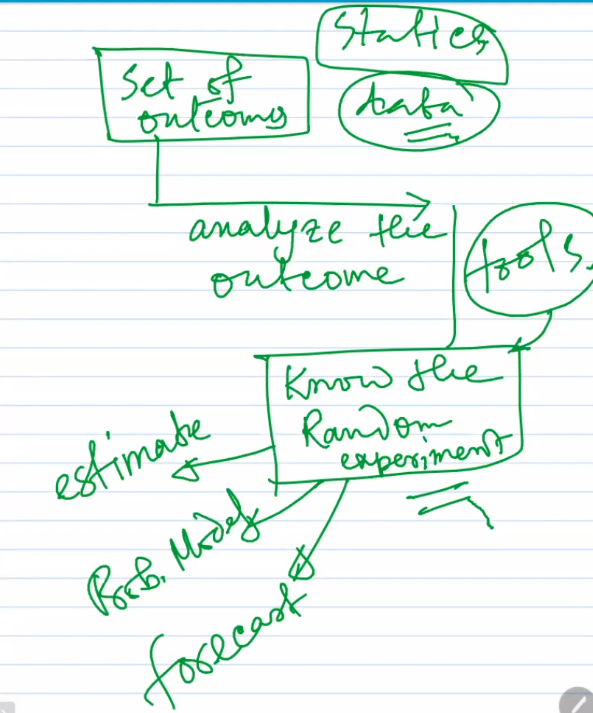 Statics
Set of
outcoms
data
analyze the
outcome
tools.
Know the
Random
experiment
estimate
Prob. Models
forecast